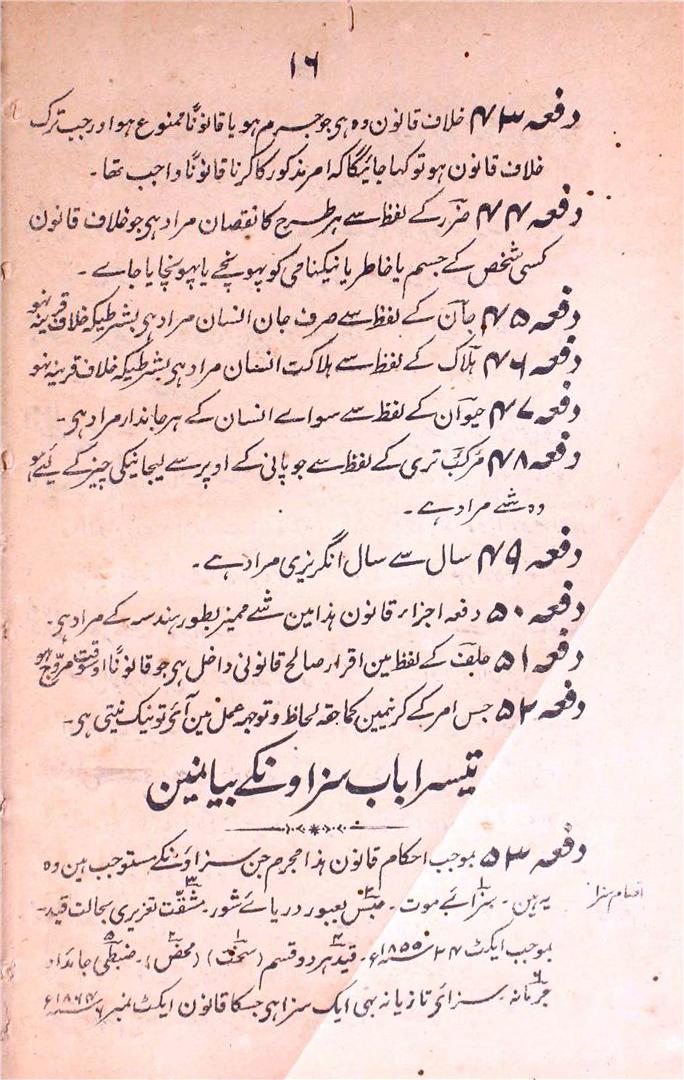 ۱۶
دفعہ ۴۳ خلاف قانون وہ ہی جو جرم ہو یا قانوناً ممنوع ہو اور جب ترک
خلاف قانون ہو تو کہا جائیگا کہ امر مذکور کا کرنا قانوناً واجب تھا۔
دفعہ ۴۴ ضرر کے لفظ سے ہر طرح کا نقصان مراد ہی جو خلاف قانون
کسی شخص کے جسم یا خاطر یا نیکنامی کو پہونچے یا پہونچایا جاے۔
دفعہ ۴۵ جان کے لفظ سے صرف جان انسان مراد ہی بشرطیکہ خلاف قرینہ نہو
دفعہ ۴۶ ہلاک کے لفظ سے ہلاکت انسان مراد ہی بشرطیکہ خلاف قرینہ نہو
دفعہ ۴۷ حیوان کے لفظ سے سواے انسان کے ہر جاندار مراد ہی۔
دفعہ ۴۸ مرکب تری کے لفظ سے جو پانی کے اوپر سے لیجانیکی چیز کے لیے ہو
وہ شے مراد ہے۔
دفعہ ۴۹ سال سے سال انگریزی مراد ہے۔
دفعہ ۵۰ دفعہ اجزاء قانون ہذا مین شے ممیز بطور ہندسہ کے مراد ہی۔
دفعہ ۵۱ حلف کے لفظ مین اقرار صالح قانونی داخل ہی جو قانوناً اوسوقت مروّج ہو
دفعہ ۵۲ جس امر کے کرنیمین کما حقہ لحاظ و توجہ عمل مین آئی تو نیک نیتی ہی۔
تیسرا باب سزاونکے بیانمین
دفعہ ۵۳ بموجب احکام قانون ہذا مجرم جن سزاؤنکے مستوجب ہین وہ
اقسام سزا
یہ ہین۔ ۱ سزائے موت۔ ۲ حبس بعبور دریائے شور۔ ۳ مشقّت تعزیری بحالت قید۔
بموجب ایکٹ ۲۴ سنہ ۱۸۵۵ء۔ ۴ قید ہر دو قسم (۱ سخت) (۲ محض)۔ ۵ ضبطی جائداد
۶ جرمانہ۔ سزائ تازیانہ بھی ایک سزا ہی جسکا قانون ایکٹ نمبر ۶ سنہ ۱۸۶۴ء